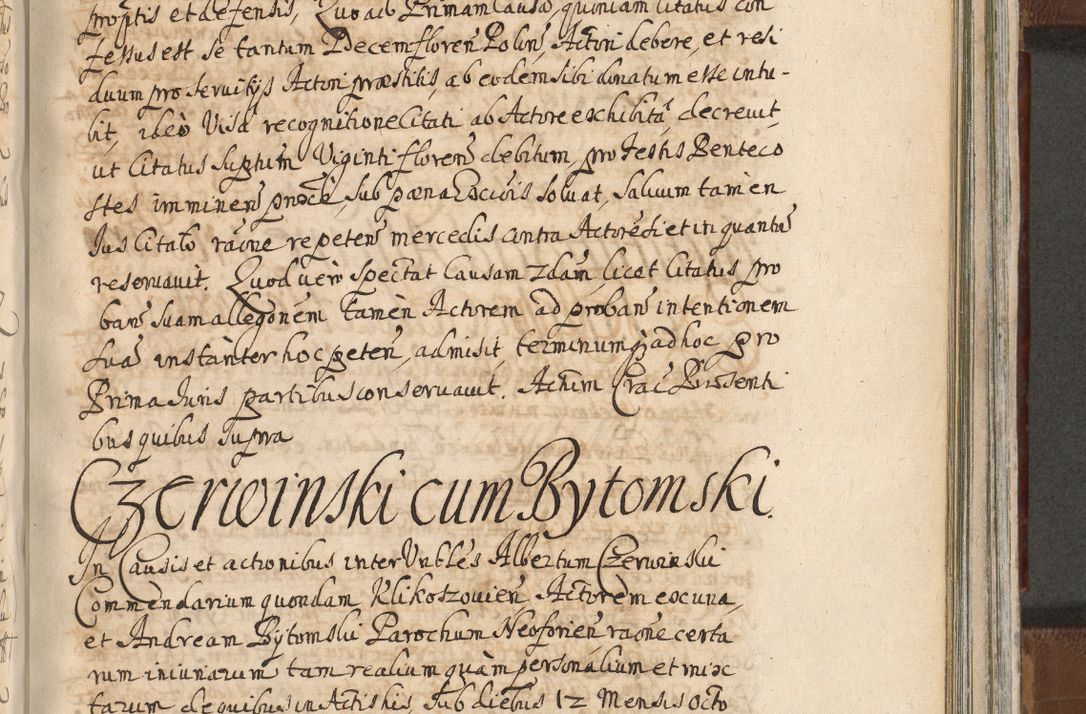 proptis et defensis, Quo ad Primam Causã, quoniam Citatus con
fessus est se tantum Decem floreñ Poloñ, Actori debere, et resi
duum pro servitijs Actori præstitis, ab eodem sibi donatum esse intu-
lit, ideò Visâ recognitione Citati ab Actore exhibitâ decrevit,
ut Citatus suptum Viginti floreñ debitum, pro Festis Penteco
stes imminen proxè, sub pæna Exciõis solvat, salvum tamèn
Jus Citato raõne repeteñ mercedis contra Actorẽ si et in quantũ
reservavit. Quod verò spectat Causam 2dam, licet Citatus pro
bare suam allegõnem tamèn Actorem ad probañ intentionem
suã instànter hoc peteñ, admisit, terminumq3 ad hoc pro
Prima Juris partibus conservavit. Actum Crac̃ Præsenti
bus quibus supra
Czerwinski cum Bytomski.
In Causis et actionibus inter Vnbles Albertum Czerwinski
Commendarium quondam Klikoszovieñ Actorem ex una,
et Andream Bytomski Parochum Neoforieñ raõne certa
rum iniuriarum tam realium quàm personalium et mix
tarum de quibus in Actis his, sub diebus 12 Mensis Octo